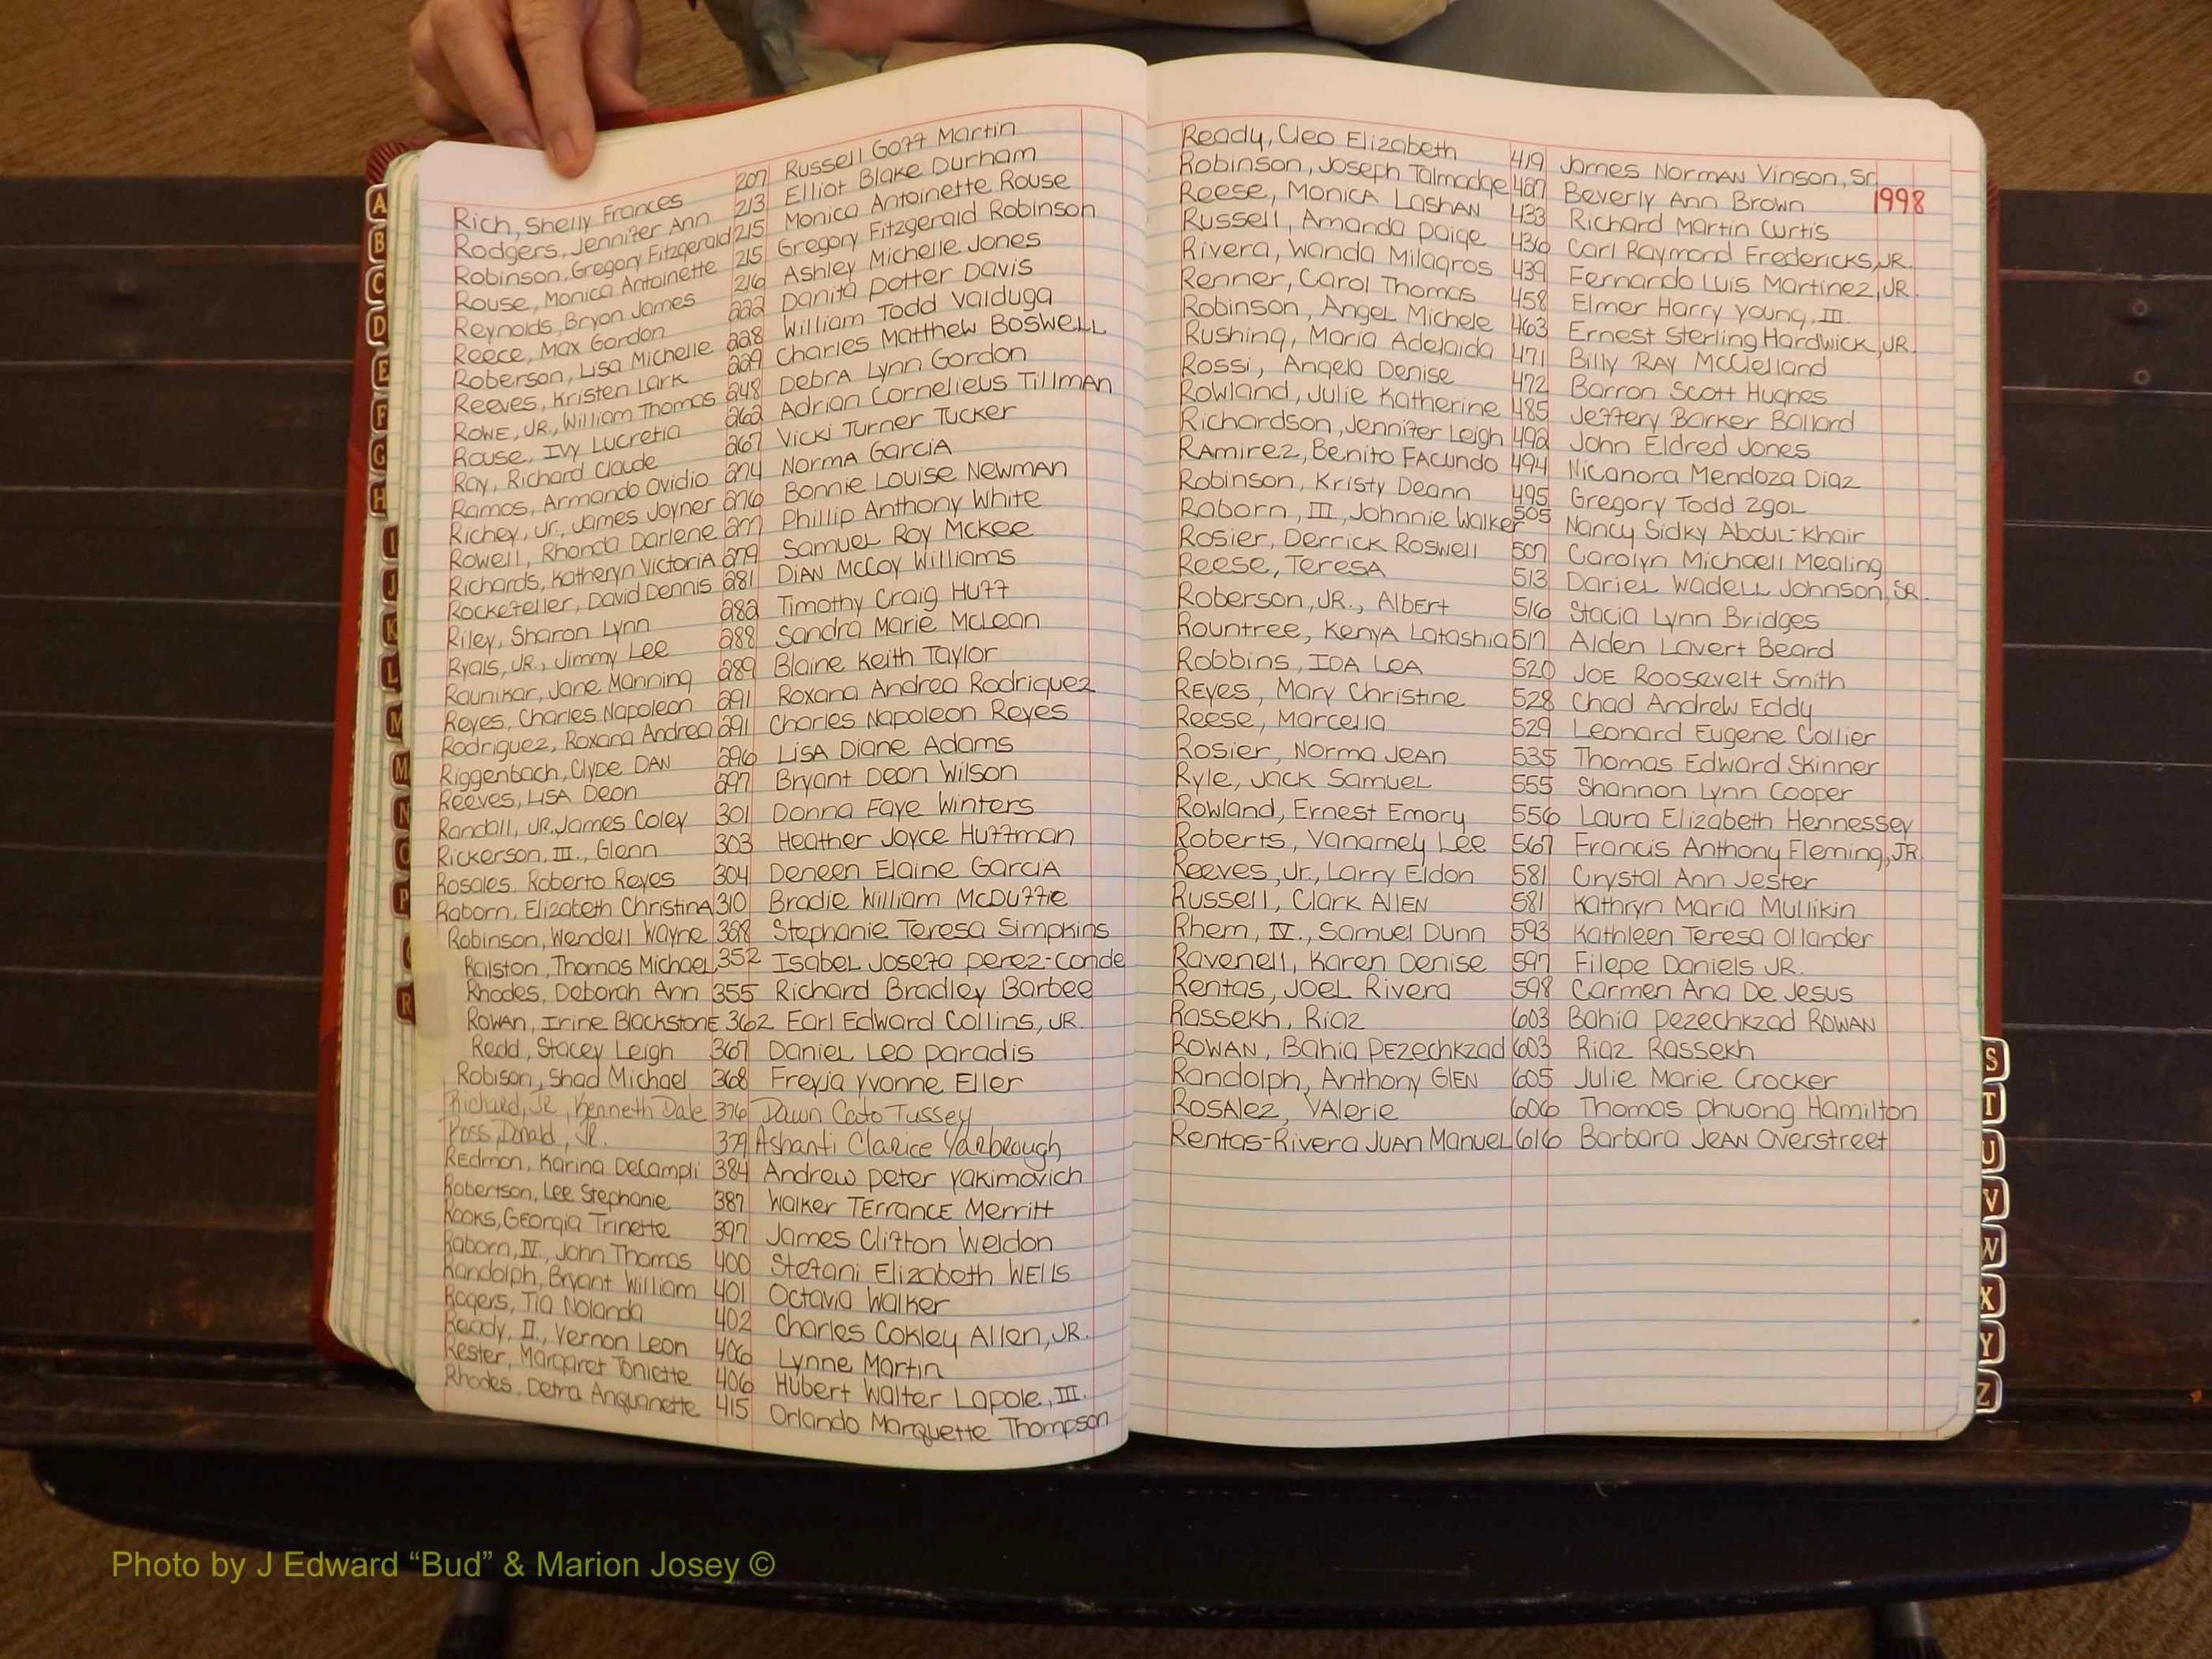 Rich, Shelly Frances 207 Russell Goff Martin
Rodgers, Jennifer Ann 213 Elliot Blake Durham
Robinson, Gregory Fitzgerald 215 Monica Antoinette Rouse
Rouse, Monica Antoinette 215 Gregory Fitzgerald Robinson
Reynolds, Bryon James 216 Ashley Michelle Jones
Reece, Max Gordon 222 Danita Potter Davis
Roberson, Lisa Michelle 228 William Todd Valduga
Reeves, Kristen Lark 229 Charles Matthew Boswell
Rowe, JR., William Thomas 248 Debra Lynn Gordon
Rouse, Ivy Lucretia 262 Adrian Cornelieus Tillman
Ray, Richard Claude 267 Vicki Turner Tucker
Ramos, Armando Ovidio 274 Norma Garcia
Richey, Jr., James Joyner 276 Bonnie Louise Newman
Rowell, Rhonda Darlene 277 Phillip Anthony White
Richards, Katheryn Victoria 279 Samuel Roy McKee
Rockefeller, David Dennis 281 Dian McCoy Williams
Riley, Sharon Lynn 282 Timothy Craig Huff
Ryals, JR., Jimmy Lee 288 Sandra Marie McLean
Raunikar, Jane Manning 289 Blaine Keith Taylor
Reyes, Charles Napoleon 291 Roxana Andrea Rodriquez
Rodriguez, Roxana Andrea 291 Charles Napoleon Reyes
Riggenbach, Clyde Dan 296 Lisa Diane Adams
Reeves, Lisa Deon 297 Bryant Deon Wilson
Randall, JR., James Coley 301 Donna Faye Winters
Rickerson, III., Glenn 303 Heather Joyce Huffman
Rosales, Roberto Reyes 304 Deneen Elaine Garcia
Raborn, Elizabeth Christina 310 Bradie William McDuffie
Robinson, Wendell Wayne 328 Stephanie Teresa Simpkins
Ralston, Thomas Michael 352 Isabel Josefa Perez-Conde
Rhodes, Deborah Ann 355 Richard Bradley Barbee
Rowan, Irine Blackstone 362 Earl Edward Collins, JR.
Redd, Stacey Leigh 367 Daniel Leo Paradis
Robison, Shad Michael 368 Freyja Yvonne Eller
Richard, JR, Kenneth Dale 376 Dawn Cato Tussey
Ross, Donald, Jr. 379 Ashanti Clarice Yarbrough
Redmon, Karina DeCampli 384 Andrew Peter Yakimovich
Robertson, Lee Stephanie 387 Walker Terrance Merritt
Rooks, Georgia Trinette 397 James Clifton Weldon
Raborn, IV., John Thomas 400 Stefani Elizabeth Wells
Randolph, Bryant William 401 Octavia Walker
Rogers, Tia Nolanda 402 Charles Cokley Allen, JR.
Ready, II., Vernon Leon 406 Lynne Martin
Rester, Margaret Toniette 406 Hubert Walter Lapole, III.
Rhodes, Detra Anquanette 415 Orlando Marquette Thompson
Ready, Cleo Elizabeth 419 James Norman Vinson, Sr
1998
Robinson, Joseph Talmadge 427 Beverly Ann Brown
Reese, Monica Lashan 433 Richard Martin Curtis
Russell, Amanda Paige 436 Carl Raymond Fredericks, JR.
Rivera, Wanda Milagros 439 Fernando Luis Martinez, JR.
Renner, Carol Thomas 458 Elmer Harry Young, III.
Robinson, Angel Michele 463 Ernest Sterling Hardwick, JR.
Rushing, Maria Adelaida 471 Billy Ray McClelland
Rossi, Angela Denise 472 Barron Scott Hughes
Rowland, Julie Katherine 485 Jeffery Barker Ballard
Richardson, Jennifer Leigh 492 John Eldred Jones
Ramirez, Benito Facundo 494 Nicanora Mendoza Diaz
Robinson, Kristy Deann 495 Gregory Todd Zgol
Raborn, III., Johnnie Walker 505 Nancy Sidky Aboul-Khair
Rosier, Derrick Roswell 507 Carolyn Michaell Mealing
Reese, Teresa 513 Dariel Wadell Johnson, SR.
Roberson, JR., Albert 516 Stacia Lynn Bridges
Rountree, Kenya Latashia 517 Alden Lavert Beard
Robbins, Ida Lea 520 Joe Roosevelt Smith
Reyes, Mary Christine 528 Chad Andrew Eddy
Reese, Marcella 529 Leonard Eugene Collier
Rosier, Norma Jean 535 Thomas Edward Skinner
Ryle, Jack Samuel 555 Shannon Lynn Cooper
Rowland, Ernest Emory 556 Laura Elizabeth Hennessey
Roberts, Vanamely Lee 567 Francis Anthony Fleming, JR.
Reeves, Jr., Larry Eldon 581 Crystal Ann Jester
Russell, Clark Allen 581 Kathryn Maria Mullikin
Rhem, IV., Samuel Dunn 593 Kathleen Teresa Ollander
Ravenell, Karen Denise 597 Filepe Daniels JR.
Rentas, Joel Rivera 598 Carmen Ana De Jesus
Rassekh, Riaz 603 Bahia Pezechkzad Rowan
Rowan, Bahia Pezechkzad 603 Riaz Rassekh
Randolph, Anthony Glen 605 Julie Marie Crocker
Rosalez, Valerie 606 Thomas Phuong Hamilton
Rentas-Rivera Juan Manuel 616 Barbara Jean Overstreet
A
B
C
D
E
F
G
H
I
J
K
L
M
M
N
O
P
Q
R
S
T
U
V
W
X
Y
Z
Photo by J Edward “Bud” & Marion Josey ©